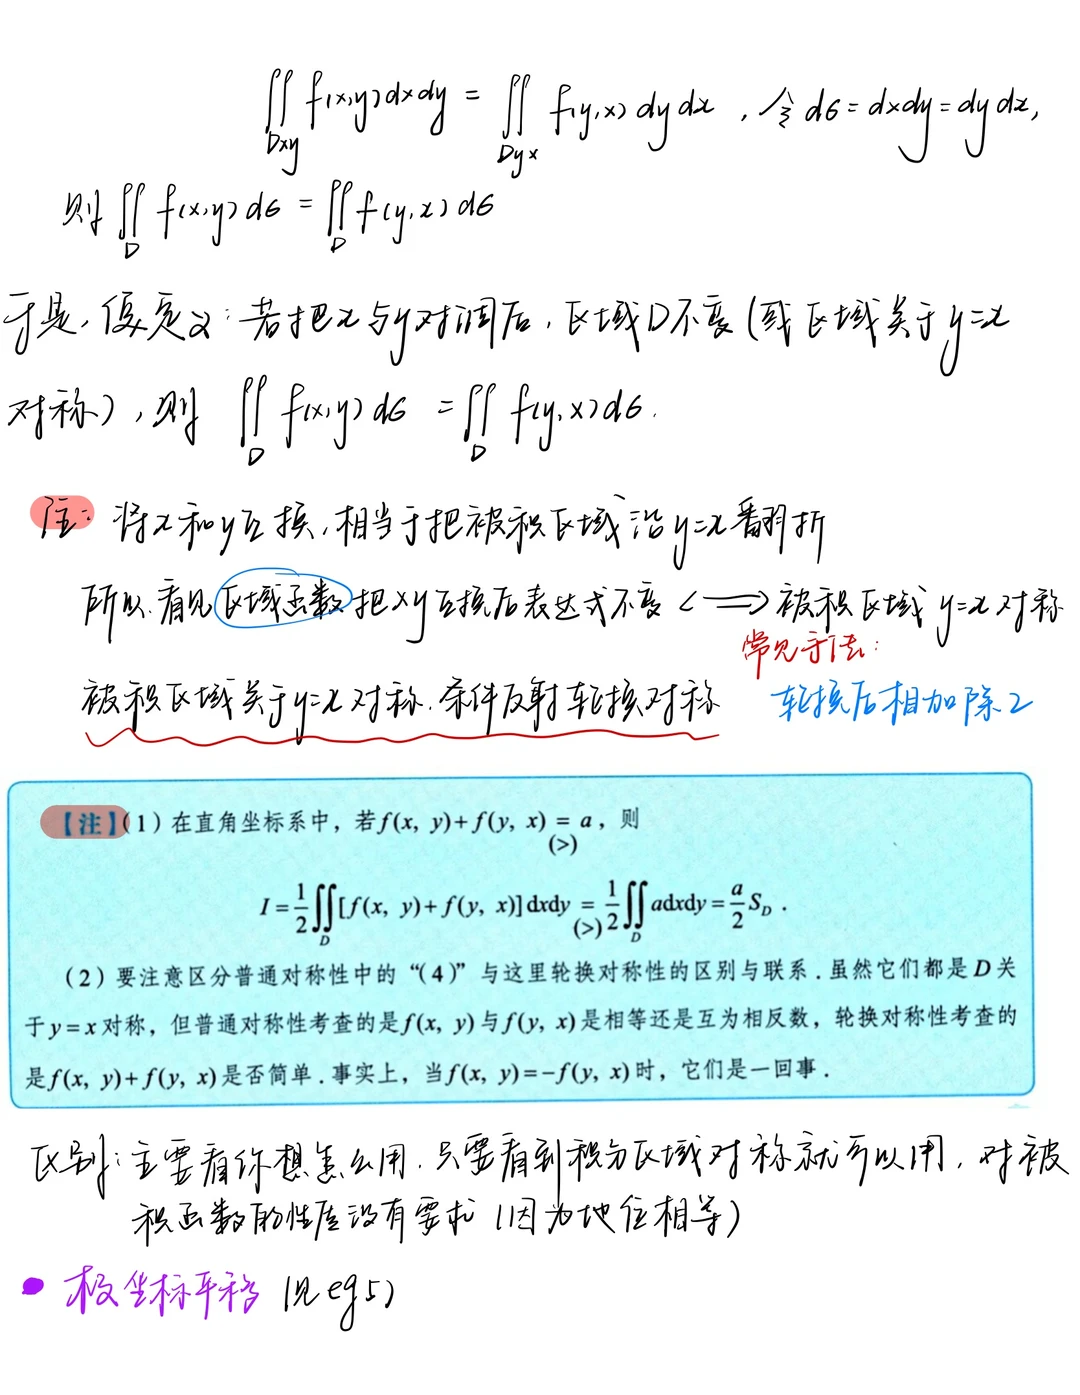 ∬_{Dxy} f(x,y)dxdy = ∬_{Dyx} f(y,x)dydx , 令dσ=dxdy=dydx,
则 ∬_D f(x,y)dσ = ∬_D f(y,x)dσ
于是, 便定义: 若把x与y对调后, 区域D不变(或区域关于y=x
对称), 则 ∬_D f(x,y)dσ = ∬_D f(y,x)dσ.
注: 将x和y互换, 相当于把被积区域沿y=x翻折
所以, 看见区域函数把xy互换后表达式不变 <=> 被积区域y=x对称
常见方法:
被积区域关于y=x对称. 条件反射轮换对称 轮换后相加除2
【注】(1)在直角坐标系中，若f(x, y)+f(y, x) = a，则
(>)
I=1/2∬_D[f(x, y)+f(y, x)]dxdy = 1/2∬_D adxdy=a/2 S_D .
(>)
(2)要注意区分普通对称性中的“(4)”与这里轮换对称性的区别与联系.虽然它们都是D关
于y=x对称，但普通对称性考查的是f(x, y)与f(y, x)是相等还是互为相反数，轮换对称性考查的
是f(x, y)+f(y, x)是否简单.事实上，当f(x, y)=-f(y, x)时，它们是一回事.
区别: 主要看你想怎么用. 只要看到积分区域对称就可以用, 对被
积函数的性质没有要求 (因为地位相等)
• 极坐标平移 (见eg5)